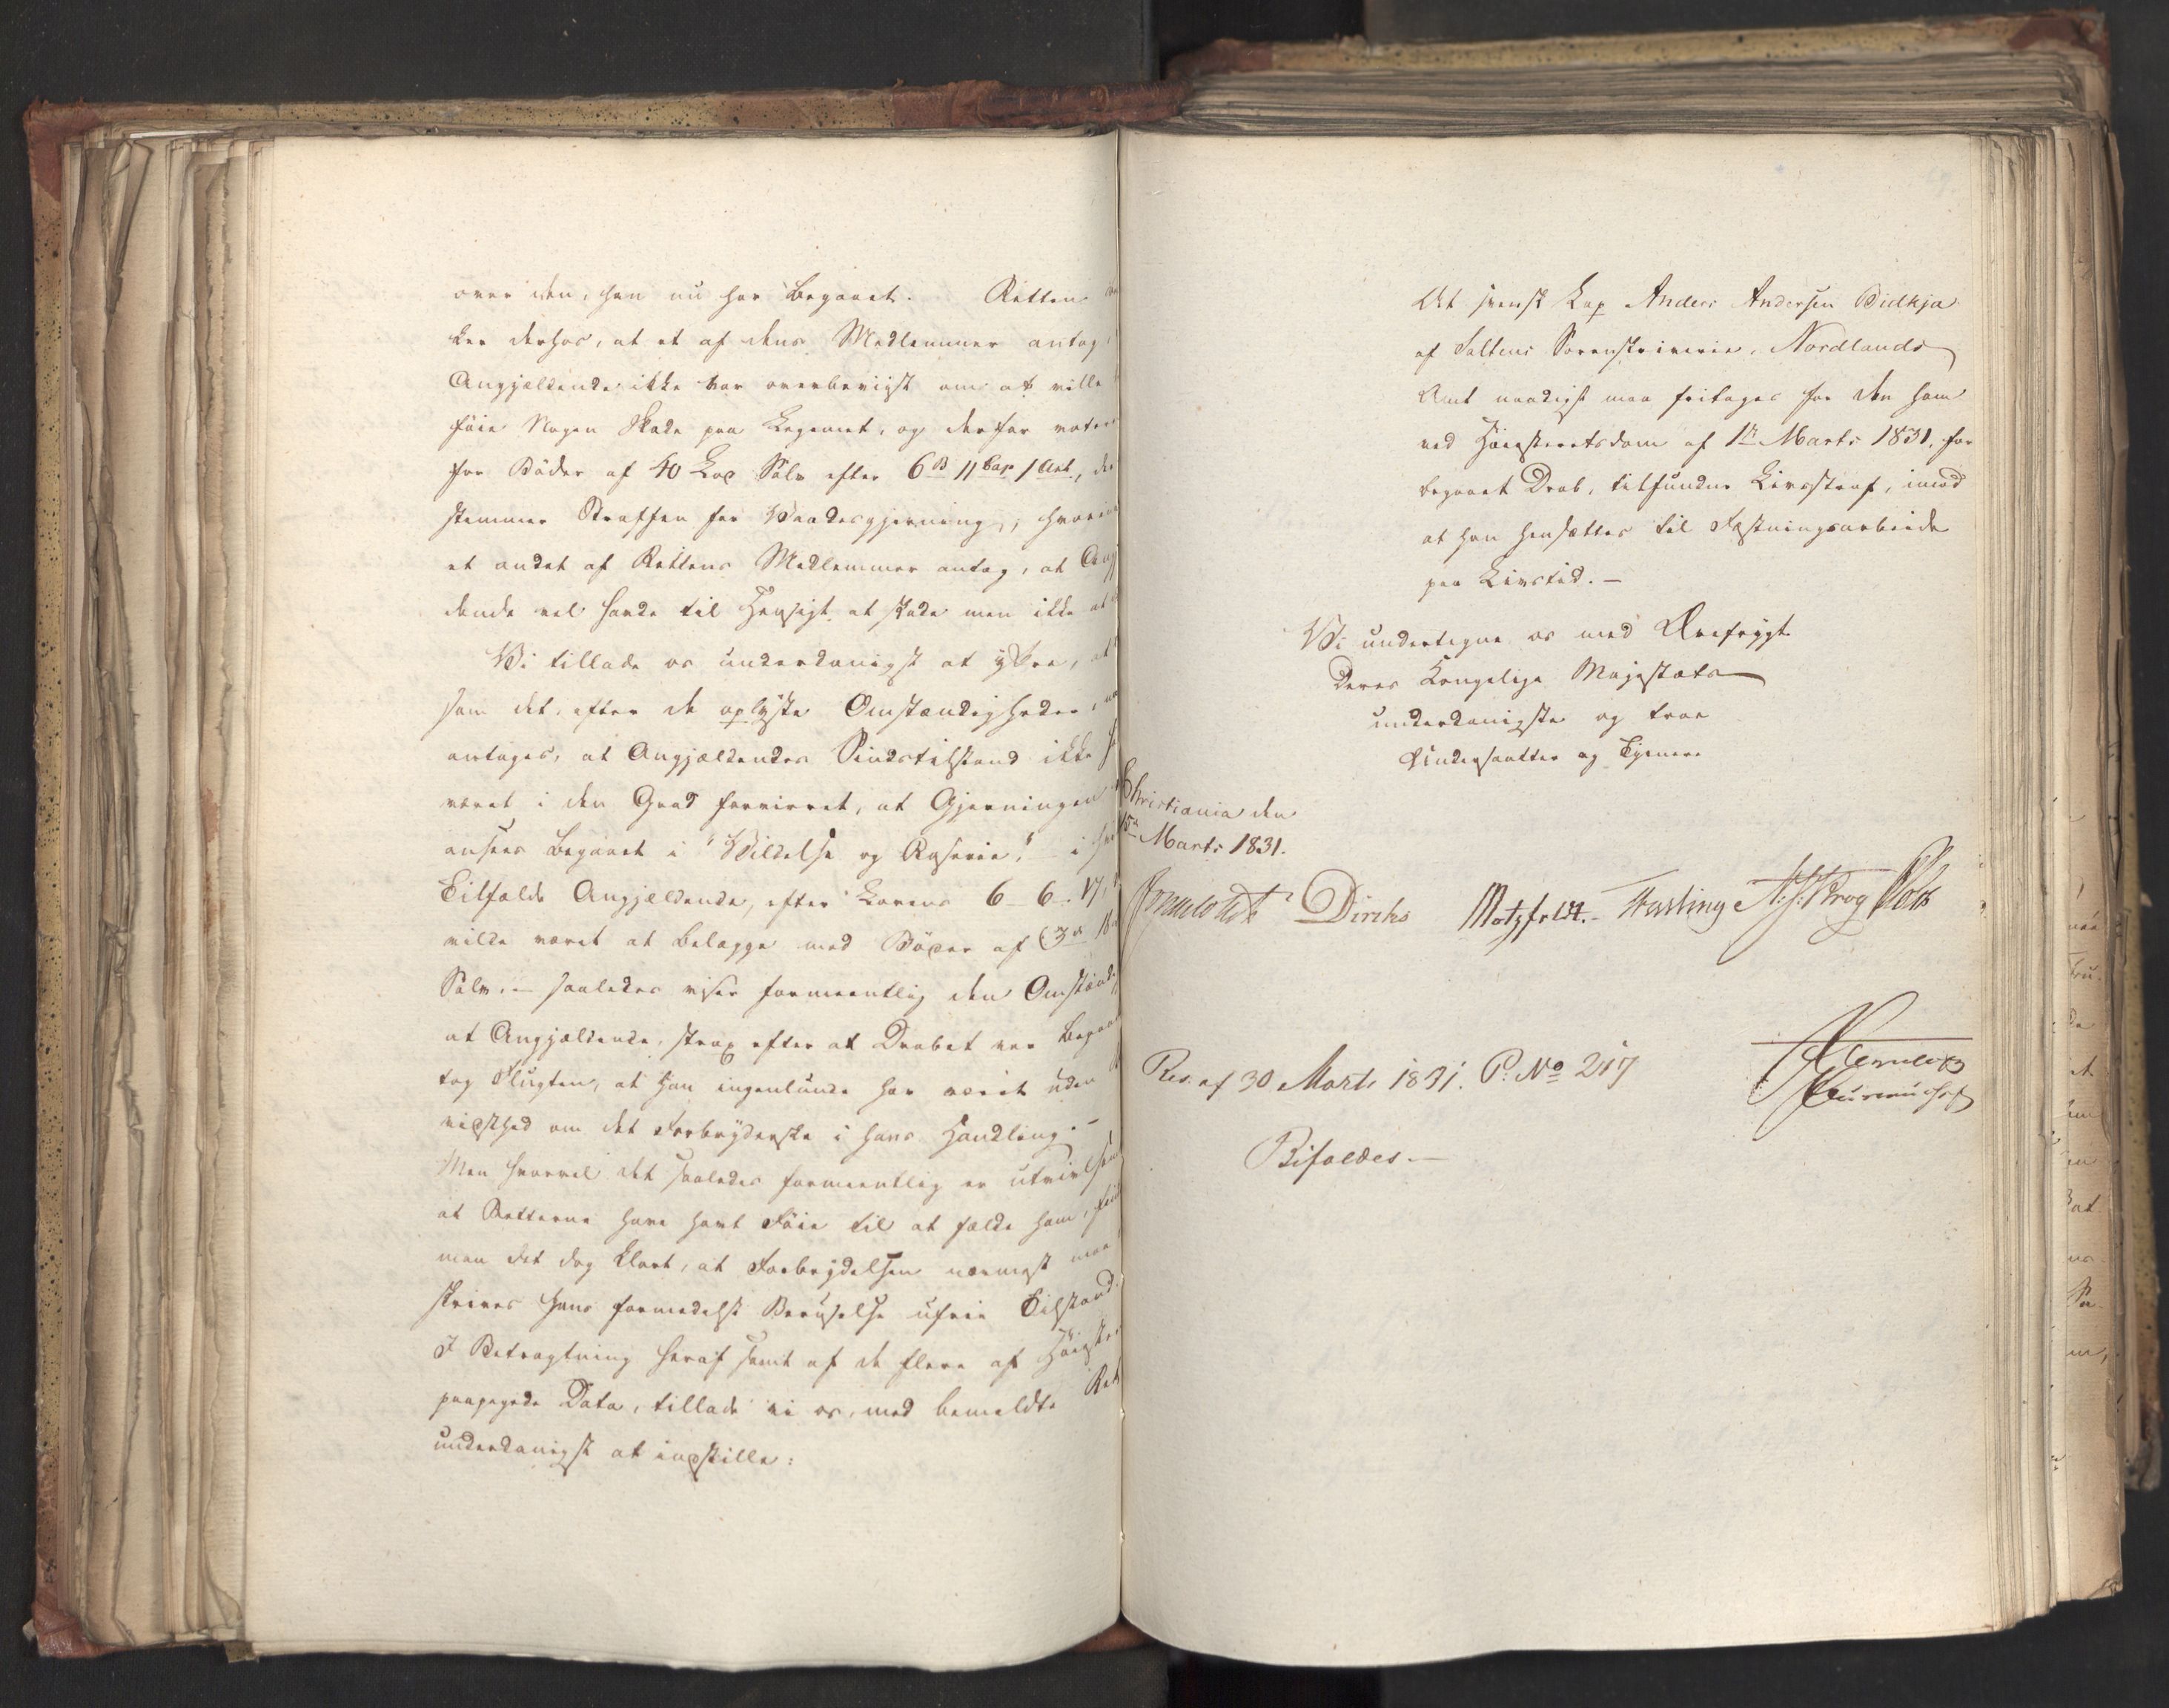 over den, han nu har begaaet. Retten
ker derhos, at et af dens Medlemmer antog,
Angjældende ikke var overbeviist om at ville
føie Nogen Skade paa Legemet, og derfor votere
for Bøder af 40 Lod Sølv efter 6 B 11 Cap 1 Art, de
stemmer Straffen for Vaadesgjerning, hvorimod
et andet af Rettens Medlemmer antog, at Angj
dende vel havde til Hensigt at skade men ikke at
Vi tillade os underdanigst at yttre, at
som det, efter de oplyste Omstændigheder,
antages, at Angjældendes Sindstilstand ikke
været i den Grad forvirret, at Gjerningen
ansees begaaet i "Vildelse og Raserie," i
Tilfælde Angjældende, efter Lovens 6 - 6 - 17,
vilde været at belægge med Bøder af 3
Sølv. - saaledes viser formeentlig den Omstænd
at Angjældende, strax efter at Drabet var begaaet
tog Flugten, at han ingenlunde har været uden
vidsthed om det Forbryderske i hans Handling. -
Men hvorvel det saaledes formeentlig er utvivlsomt
at Retterne have havt Føie til at fælde ham,
man det dog klart, at Forbrydelsen nærmest maa
skrives hans formedelst Beruselse ufrie Tilstand.
I Betragtning heraf samt af de flere af Høieste
paapegede Data, tillade vi os, med bemeldte Ret
underdanigst at indstille:
At svensk Lap Anders Andersen Bidkja
af Saltens Sorenskriverie, Nordlands
Amt naadigst maa fritages for den ham
ved Høiesteretsdom af 1ste Marts 1831, for
begaaet Drab, tilfundne Livsstraf, imod
at han hensættes til Fæstningsarbeide
paa Livstid. -
Vi undertegne os med Ærefrygt
Deres Kongelige Majestæts
underdanigste og troe
Undersaatter og Tjenere
Christiania den
Marts 1831.
Diriks Motzfeldt. -
Res. af 30 Marts 1831. P: No 217
Bifaldes. -